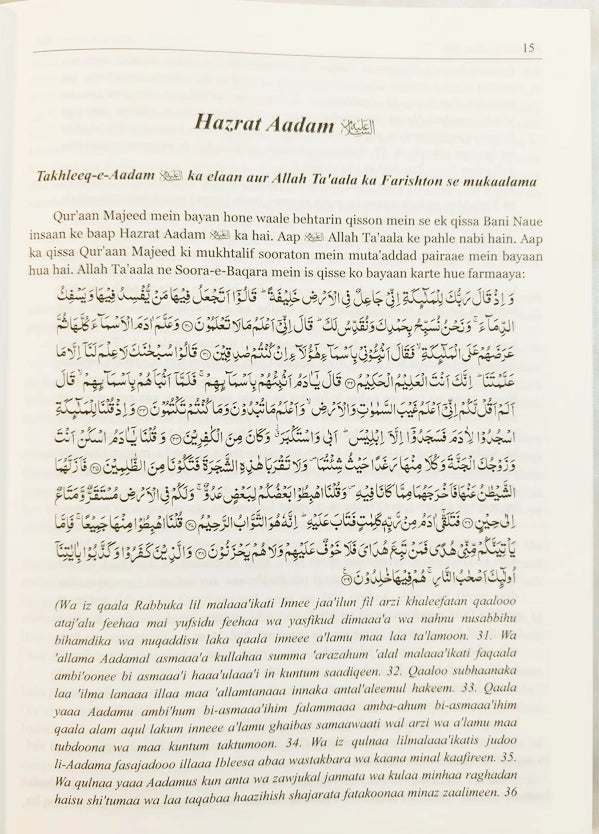 15
Hazrat Aadam عليه السلام
Takhleeq-e-Aadam عليه السلام ka elaan aur Allah Ta'aala ka Farishton se mukaalama
Qur'aan Majeed mein bayan hone waale behtarin qisson mein se ek qissa Bani Naue
insaan ke baap Hazrat Aadam عليه السلام ka hai. Aap عليه السلام Allah Ta'aala ke pahle nabi hain. Aap
ka qissa Qur'aan Majeed ki mukhtalif sooraton mein muta'addad pairaae mein bayan
hua hai. Allah Ta'aala ne Soora-e-Baqara mein is qisse ko bayaan karte hue farmaaya:
وَ اِذْ قَالَ رَبُّكَ لِلْمَلٰٓىِٕكَةِ اِنِّیْ جَاعِلٌ فِی الْاَرْضِ خَلِیْفَةً ؕ قَالُوْۤا اَتَجْعَلُ فِیْهَا مَنْ یُّفْسِدُ فِیْهَا وَ یَسْفِكُ
الدِّمَآءَ ۚ وَ نَحْنُ نُسَبِّحُ بِحَمْدِكَ وَ نُقَدِّسُ لَكَ ؕ قَالَ اِنِّیْۤ اَعْلَمُ مَا لَا تَعْلَمُوْنَ ﴿۳۰﴾ وَ عَلَّمَ اٰدَمَ الْاَسْمَآءَ كُلَّهَا ثُمَّ
عَرَضَهُمْ عَلَی الْمَلٰٓىِٕكَةِ ۙ فَقَالَ اَنْۢبِـُٔوْنِیْ بِاَسْمَآءِ هٰۤؤُلَآءِ اِنْ كُنْتُمْ صٰدِقِیْنَ ﴿۳۱﴾ قَالُوْا سُبْحٰنَكَ لَا عِلْمَ لَنَاۤ اِلَّا مَا
عَلَّمْتَنَا ؕ اِنَّكَ اَنْتَ الْعَلِیْمُ الْحَكِیْمُ ﴿۳۲﴾ قَالَ یٰۤاٰدَمُ اَنْۢبِئْهُمْ بِاَسْمَآىِٕهِمْ ۚ فَلَمَّاۤ اَنْۢبَاَهُمْ بِاَسْمَآىِٕهِمْ ۙ قَالَ
اَلَمْ اَقُلْ لَّكُمْ اِنِّیْۤ اَعْلَمُ غَیْبَ السَّمٰوٰتِ وَ الْاَرْضِ ۙ وَ اَعْلَمُ مَا تُبْدُوْنَ وَ مَا كُنْتُمْ تَكْتُمُوْنَ ﴿۳۳﴾ وَ اِذْ قُلْنَا لِلْمَلٰٓىِٕكَةِ
اسْجُدُوْا لِاٰدَمَ فَسَجَدُوْۤا اِلَّاۤ اِبْلِیْسَ ؕ اَبٰی وَ اسْتَكْبَرَ ٭۫ وَ كَانَ مِنَ الْكٰفِرِیْنَ ﴿۳۴﴾ وَ قُلْنَا یٰۤاٰدَمُ اسْكُنْ اَنْتَ
وَ زَوْجُكَ الْجَنَّةَ وَ كُلَا مِنْهَا رَغَدًا حَیْثُ شِئْتُمَا ۪ وَ لَا تَقْرَبَا هٰذِهِ الشَّجَرَةَ فَتَكُوْنَا مِنَ الظّٰلِمِیْنَ ﴿۳۵﴾ فَاَزَلَّهُمَا
الشَّیْطٰنُ عَنْهَا فَاَخْرَجَهُمَا مِمَّا كَانَا فِیْهِ ۪ وَ قُلْنَا اهْبِطُوْا بَعْضُكُمْ لِبَعْضٍ عَدُوٌّ ۚ وَ لَكُمْ فِی الْاَرْضِ مُسْتَقَرٌّ وَّ مَتَاعٌ
اِلٰی حِیْنٍ ﴿۳۶﴾ فَتَلَقّٰۤی اٰدَمُ مِنْ رَّبِّهٖ كَلِمٰتٍ فَتَابَ عَلَیْهِ ؕ اِنَّهٗ هُوَ التَّوَّابُ الرَّحِیْمُ ﴿۳۷﴾ قُلْنَا اهْبِطُوْا مِنْهَا جَمِیْعًا ۚ فَاِمَّا
یَاْتِیَنَّكُمْ مِّنِّیْ هُدًی فَمَنْ تَبِعَ هُدَایَ فَلَا خَوْفٌ عَلَیْهِمْ وَ لَا هُمْ یَحْزَنُوْنَ ﴿۳۸﴾ وَ الَّذِیْنَ كَفَرُوْا وَ كَذَّبُوْا بِاٰیٰتِنَاۤ
اُولٰٓىِٕكَ اَصْحٰبُ النَّارِ ۚ هُمْ فِیْهَا خٰلِدُوْنَ ﴿۳۹﴾
(Wa iz qaala Rabbuka lil malaaa'ikati Innee jaa'ilun fil arzi khaleefatan qaalooo
ataj'alu feehaa mai yufsidu feehaa wa yasfikud dimaaa'a wa nahnu nusabbihu
bihamdika wa nuqaddisu laka qaala inneee a'lamu maa laa ta'lamoon. 31. Wa
'allama Aadamal asmaaa'a kullahaa summa 'arazahum 'alal malaaa'ikati faqaala
ambi'oonee bi asmaaa'i haaa'ulaaa'i in kuntum saadiqeen. 32. Qaaloo subhaanaka
laa 'ilma lanaaa illaa maa 'allamtanaaa innaka antal'aleemul hakeem. 33. Qaala
yaaa Aadamu ambi'hum bi-asmaaa'ihim falammaaa amba-ahum bi-asmaaa'ihim
qaala alam aqul lakum inneee a'lamu ghaibas samaawaati wal arzi wa a'lamu maa
tubdoona wa maa kuntum taktumoon. 34. Wa iz qulnaa lilmalaaa'ikatis judoo
li-Aadama fasajadooo illaaa Ibleesa abaa wastakbara wa kaana minal kaafireen. 35.
Wa qulnaa yaaa Aadamus kun anta wa zawjukal jannata wa kulaa minhaa raghadan
haisu shi'tumaa wa laa taqabaa haazihish shajarata fatakoonaa minaz zaalimeen. 36